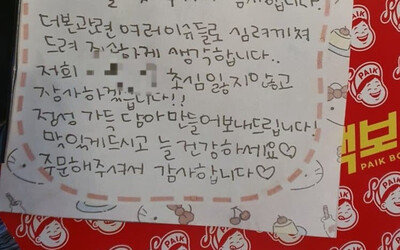 감사합니다.
더본관련 여러이슈들로 심려끼쳐
드려 죄송하게 생각합니다..
저희 초심잃지않고
감사하겠습니다!!
정성 가득 담아 만들어보내드립니다!
맛있게드시고 늘 건강하세요♡
주문해주셔서 감사합니다♡
PAIK
백보
PAIK BO
PAIK
PAIK
PAIK